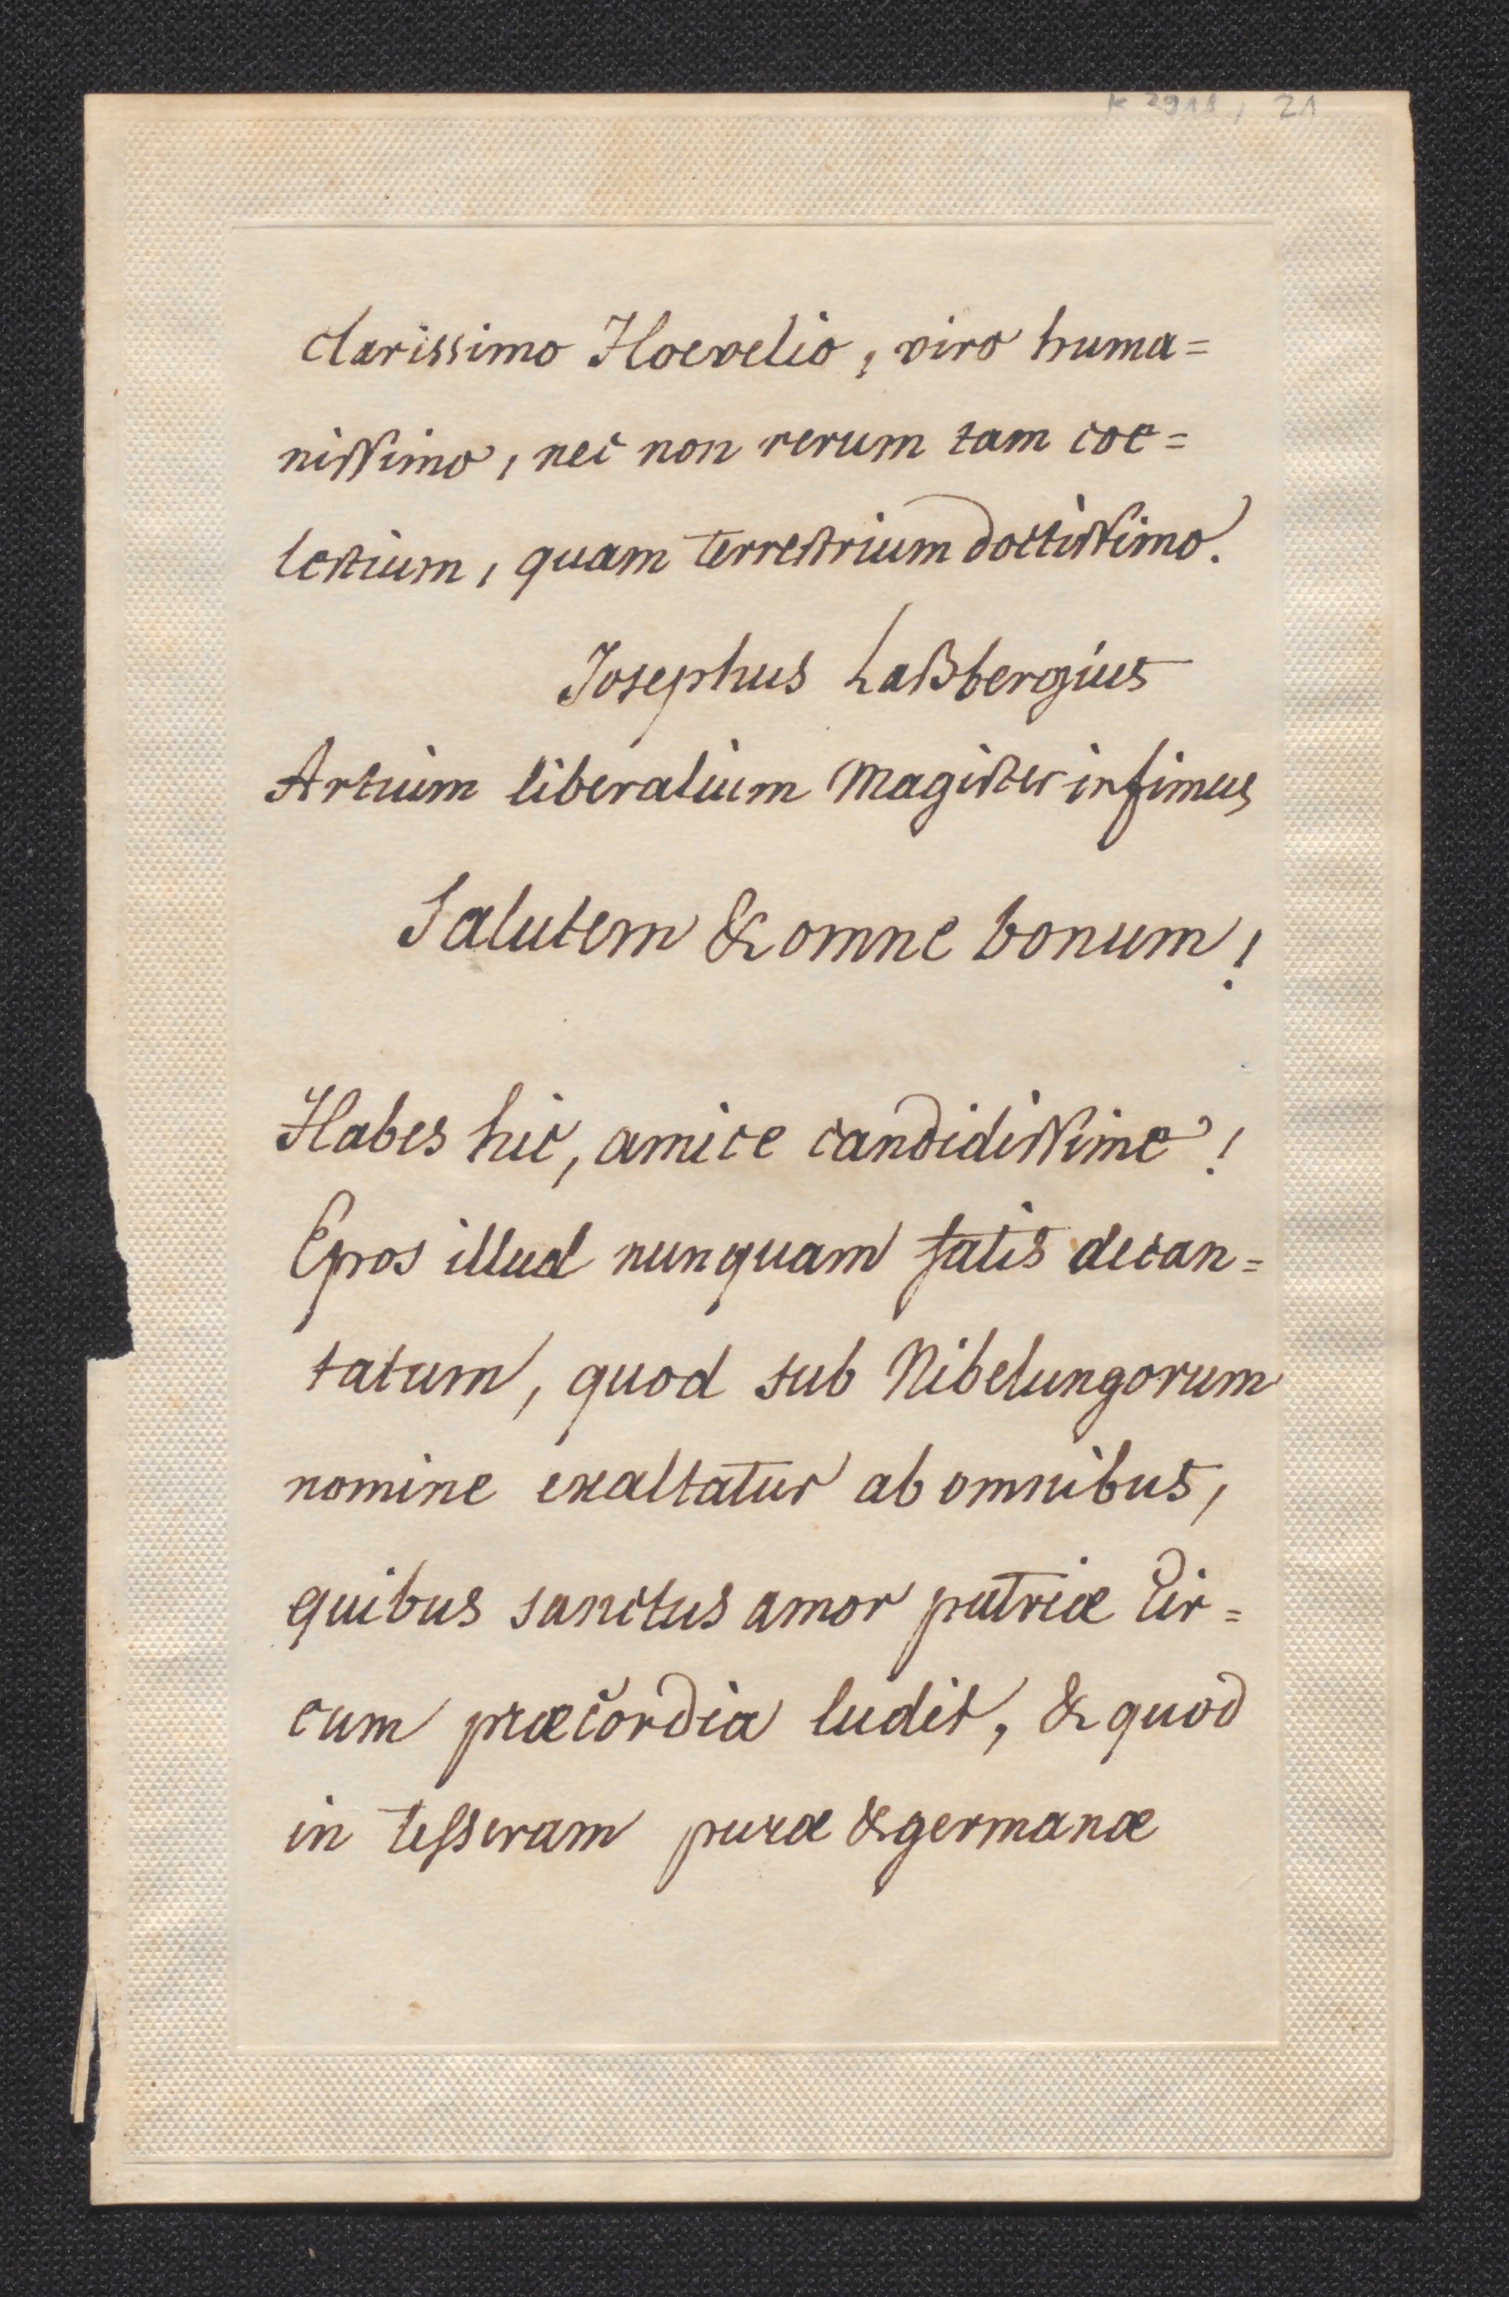 K 2918, 21
clarissimo Hoevelio, viro huma=
nissimo, nec non rerum tam coe=
lestium, quam terrestrium doctissimo.
Josephus Laßbergius
Artium liberalium Magister infimus
Salutem & omne bonum!
Habes hic, amice candidissime!
Epos illud nunquam satis decan=
tatum, quod sub Nibelungorum
nomine exaltatur ab omnibus,
quibus sanctus amor patriæ Cir=
cum præcordia ludit, & quod
in tesseram puræ & germanæ